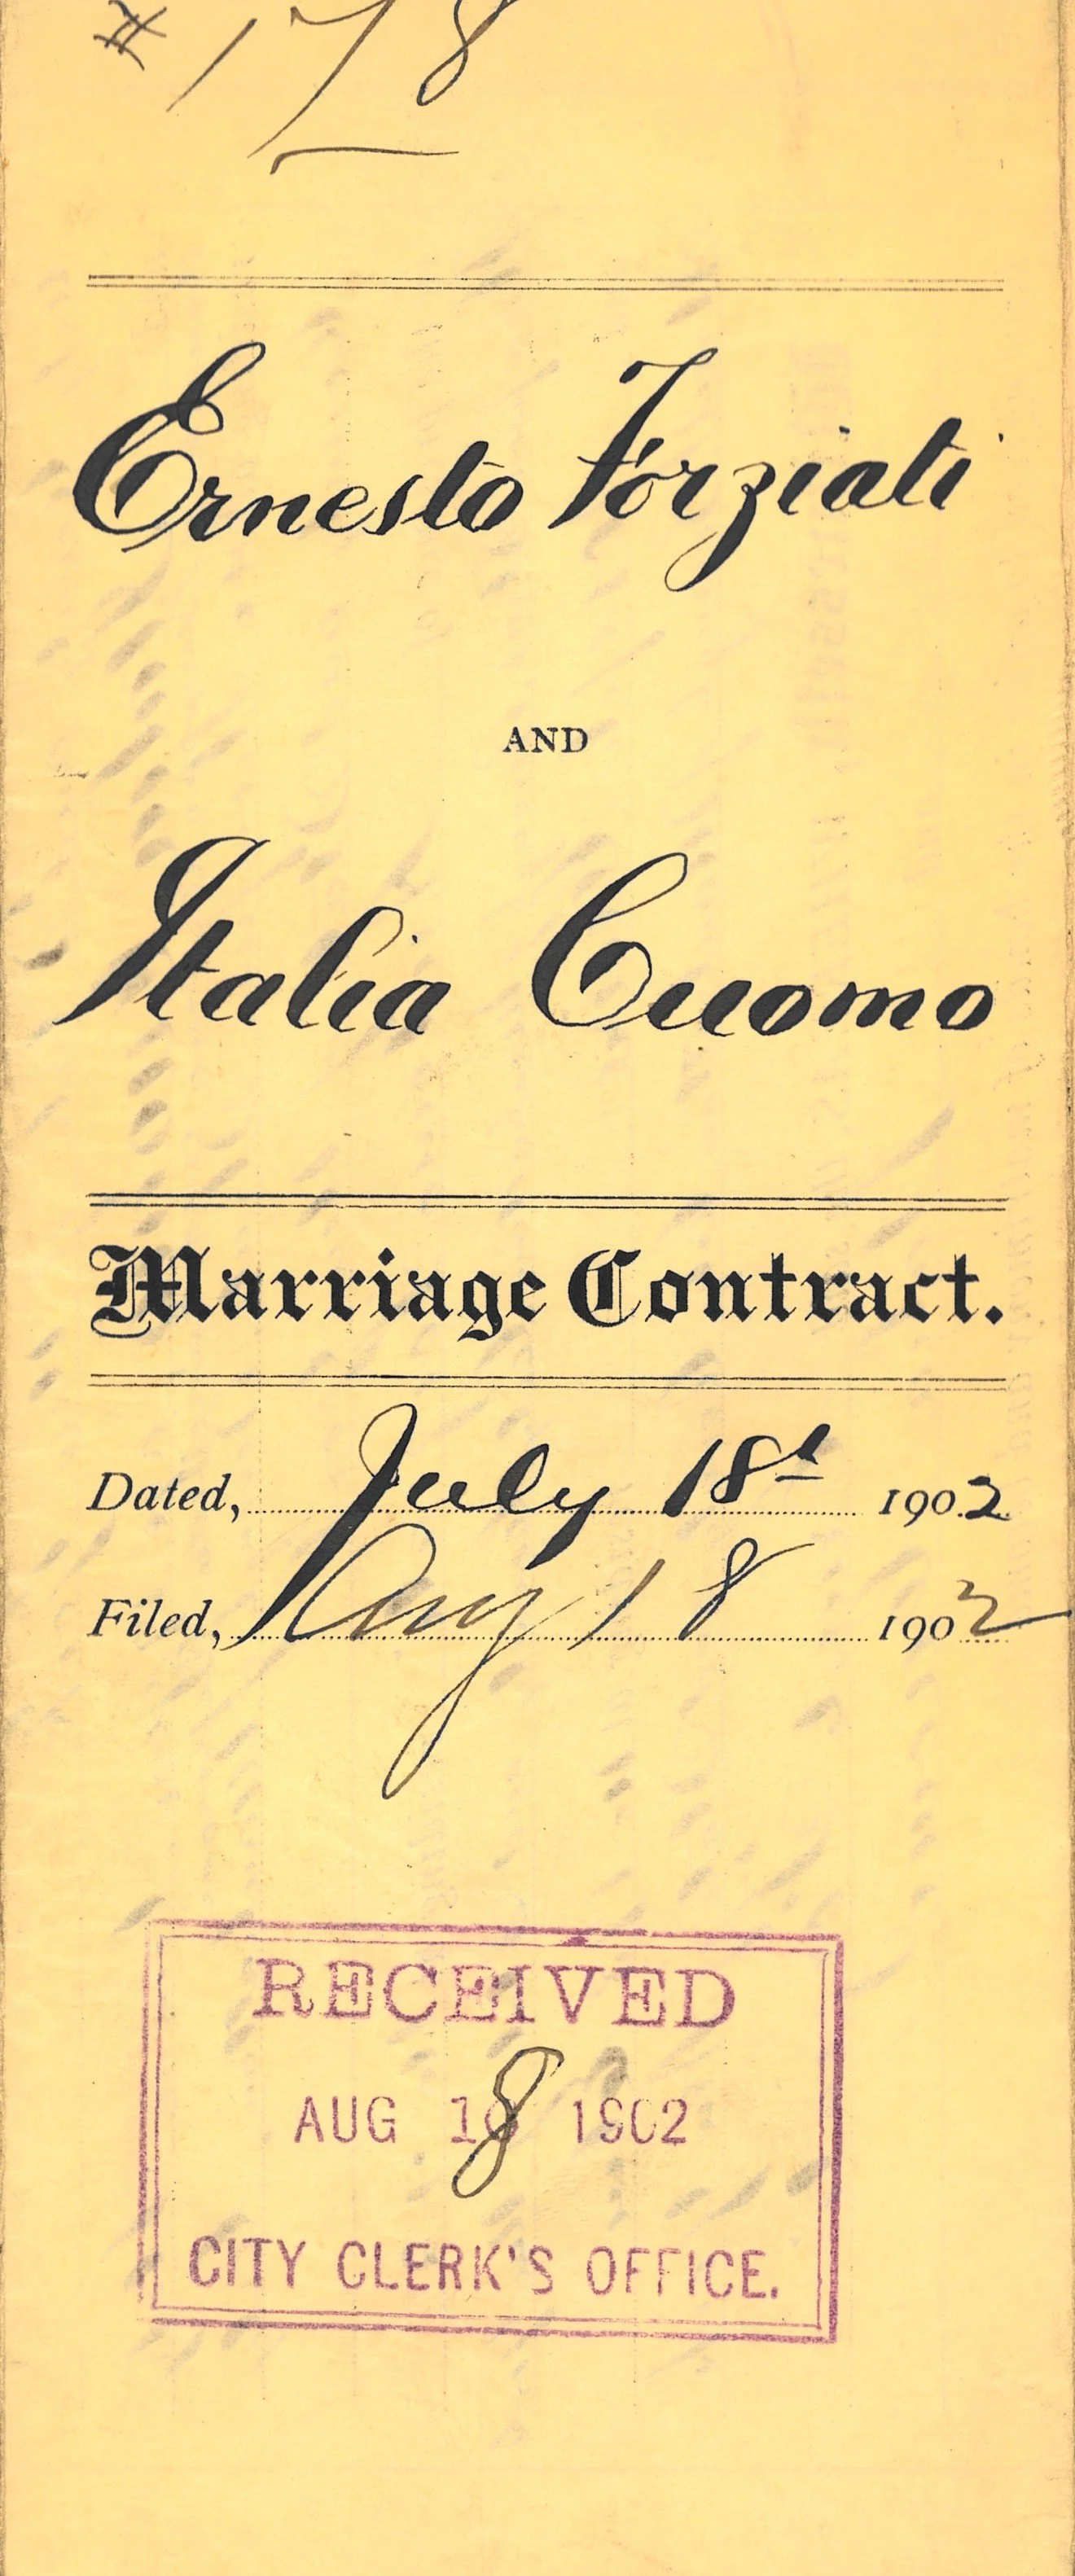 # 178
Ernesto Forziati
AND
Italia Cuomo
Marriage Contract.
Dated, July 18th 1902.
Filed, Aug 18 1902
RECEIVED
AUG 18 1902
CITY CLERK'S OFFICE.